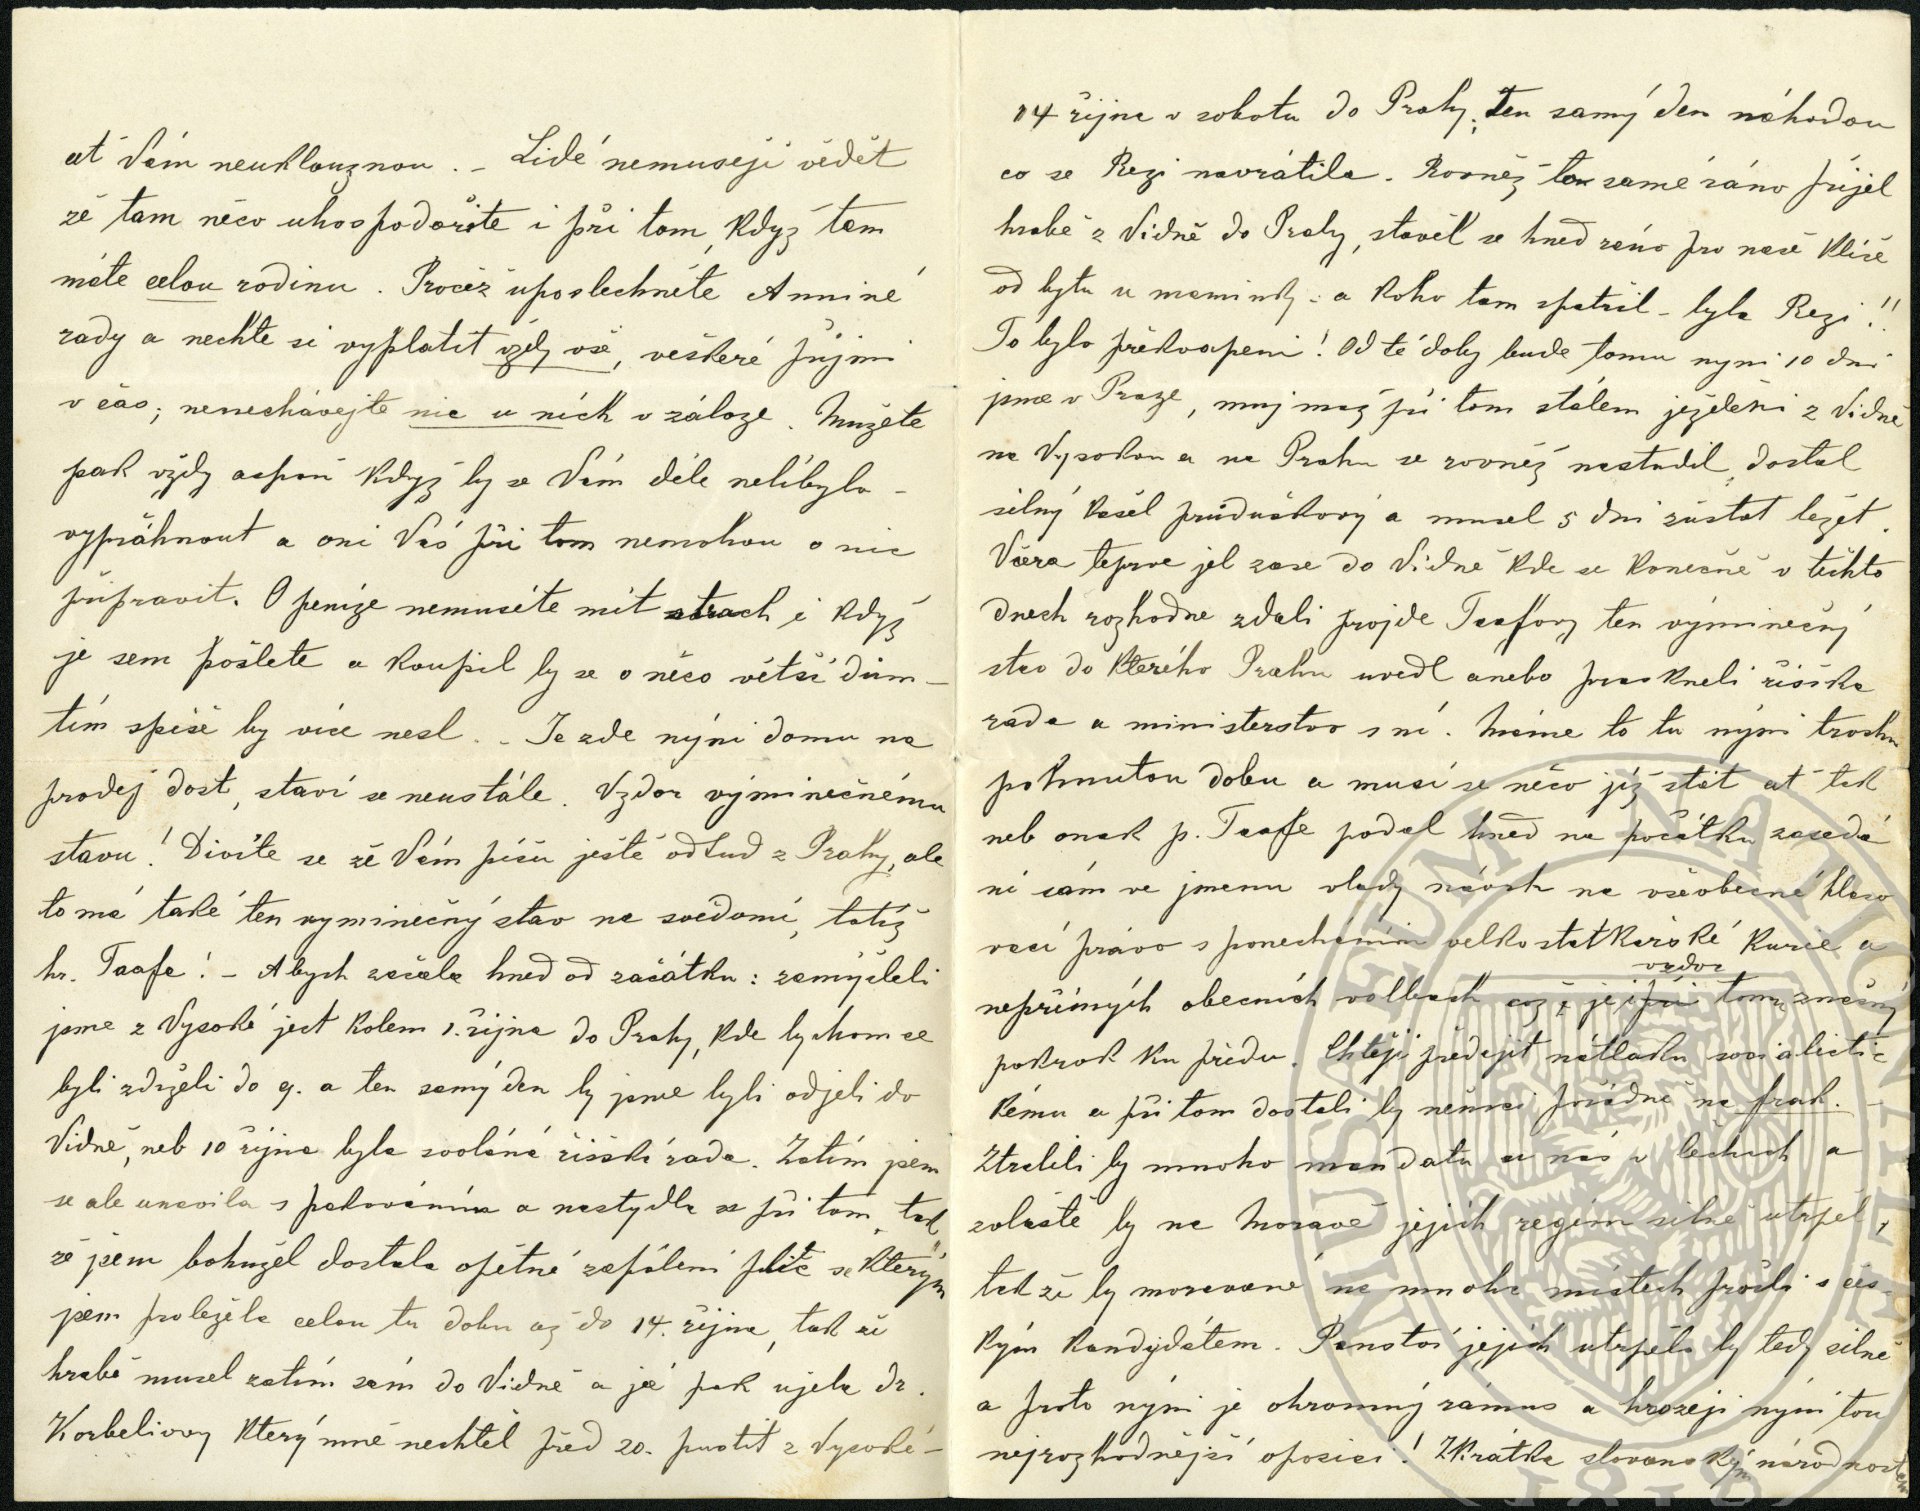 ať Vám neuklouznou. – Lidé nemusejí vědět
že tam něco uhospodaříte i při tom, když tam
máte celou rodinu. Pročež uposlechněte Anniné
rady a nechte si vyplatit vždy vše, veškeré příjmi
v čas; nenechávejte nic u nich v záloze. Mužete
pak vždy aspoň když by se Vám déle nelíbylo –
vypřáhnout a oni Vás při tom nemohou o nic
připravit. O peníze nemusíte mít strach i když
je sem pošlete a koupil by se o něco větší dům –
tím spíše by více nesl. – Je zde nýni domu na
prodej dost, staví se neustále. Vzdor výminečnému
stavu! Divíte se že Vám píšu ještě odtud z Prahy, ale
to má také ten vyminečný stav na svědomí, totiž
hr. Taafe! – Abych začala hned od začátku: zamýšleli
jsme z Vysoké jet kolem 1. října do Prahy, kde bychom se
byli zdrželi do 9. a ten samý den by jsme byli odjeli do
Vídně, neb 10 října byla svolána říšská rada. Zatím jsem
se ale unavila s pakováním a nastydla se při tom, tak
že jsem bohužel dostala opětné zapálení plic se kterým
jsem proležela celou tu dobu až do 14. října, tak že
hrabě musel zatím sám do Vídně a já pak ujela dr.
Korbeliovy který mně nechtěl před 20. pustit z Vysoké –
14 října v sobotu do Prahy; ten samý den náhodou
co se Rezi navrátila. Rovněž to samé ráno přijel
hrabě z Vídně do Prahy, stavěl se hned ráno pro naše klíče
od bytu u maminky: a koho tam spatřil – byla Rezi!!
To bylo překvapení! Od té doby bude tomu nyni 10 dní
jsme v Praze, muj muž při tom stálem ježdění z Vídně
na Vysokou a na Prahu se rovněž nastudil, dostal
silný kašel průduškový a musel 5 dní zůstat ležet.
Včera teprve jel zase do Vídně kde se konečně v těchto
dnech rozhodne zdali projde Taafovy ten výminečný
stav do kterého Prahu uvedl anebo praskneli říšská
rada a ministerstvo s ní. Máme to tu nýni trochu
pohnutou dobu a musí se něco již stát ať tak
neb onak p. Taafe podal hned na počátku zasedá
ní sám ve jmenu vlady návrh na všeobecné hlaso
vací právo s ponecháním velkostatkářské kurie a
nepřímých obecních volbách což je i při vzdor tomu značný
pokrok ku předu. Chtějí předejít nátlaku socialistic
kému a při tom dostali by němci pořádně na frak. –
Ztratili by mnoho mandatu u nás v čechách a
zvláště by na Moravě jejich regim silně utrpěl,
tak že by moravané na mnoha místech prošli s čes-
kým kandydátem. Panství jejich utrpělo by tedy silně
a proto nýni je ohromný rámus a hrozeji nýni tou
nejrozhodnější oposicí! Zkrátka slovanským národnostem